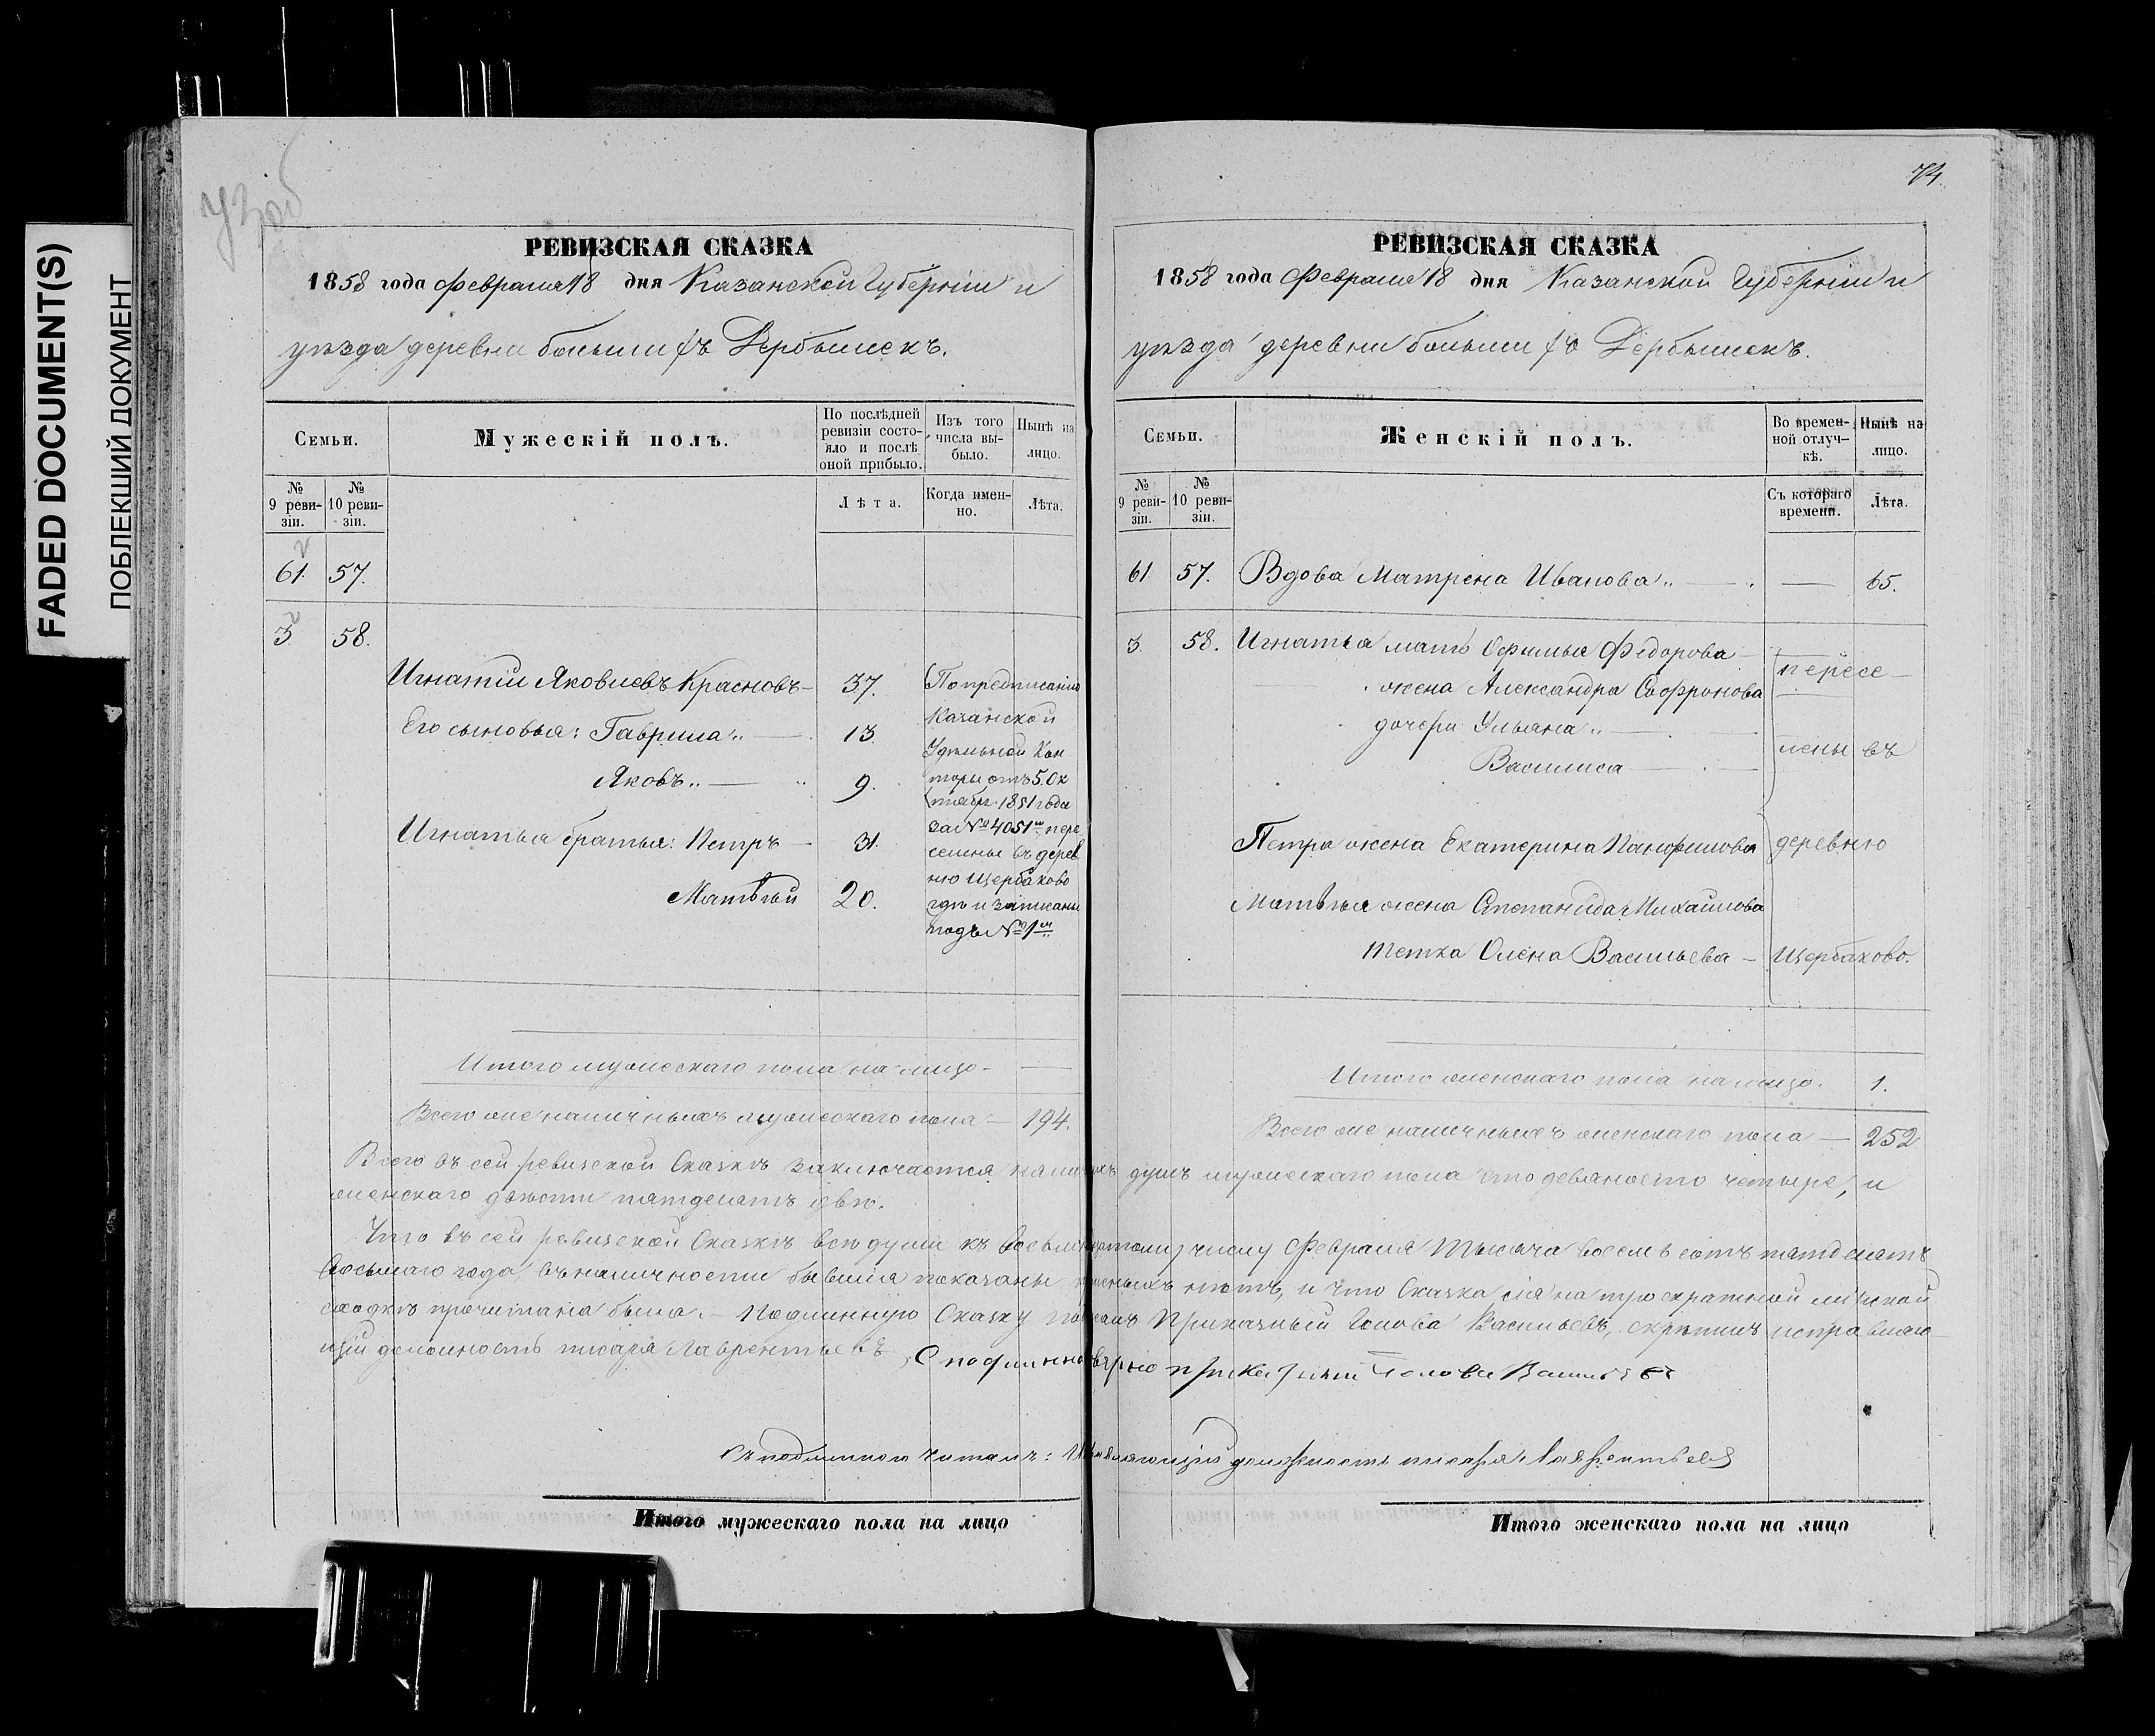 FADED DOCUMENT(S)
ПОБЛЕКШИЙ ДОКУМЕНТ
РЕВИЗСКАЯ СКАЗКА
1858 года Февраля 18 дня Казанской Губерніи и
уѣзда деревни большихъ Дербышекъ.
Семьи.
Мужескій полъ.
По послѣдней ревизіи состо-
яло и послѣ оной прибыло.
Изъ того числа вы-
было.
Нынѣ на лицо.
№ 9 реви-
зіи.
№ 10 реви-
зіи.
Лѣта.
Когда имен-
но.
Лѣта.
61. 57.
3 58.
Игнатій Яковлевъ Красновъ 37.
Его сыновья: Гаврила 13
Яковъ 9.
Игнатья братья: Петръ 31.
Матвѣй 20.
По предписанію
Казанской
Удѣльной Кон
торы отъ 5. Ок
тябр. 1851 года
за № 4051 пере
селены въ дерев
ню Щербаково
гдѣ и записаны
подъ № 1м
Итого мужескаго пола на лицо —
Всего же наличныхъ мужескаго пола — 194.
74.
РЕВИЗСКАЯ СКАЗКА
1858 года Февраля 18 дня Казанской Губерніи и
уѣзда деревни большихъ Дербышекъ.
Семьи.
Женскій полъ.
Во времен-
ной отлуч-
кѣ.
Нынѣ на лицо.
№ 9 реви-
зіи.
№ 10 реви-
зіи.
Съ котораго времени.
Лѣта.
61. 57. Вдова Матрена Иванова — 65.
3. 58. Игнатья мать Офимья Федорова
жена Александра Софронова
дочери Ульяна
Василиса
Петра жена Екатерина Панфилова
Матвѣя жена Степанида Михайлова
тетка Олена Васильева
пересе
лены въ
деревню
Щербаково.
Итого женскаго пола на лицо. 1.
Всего же наличныхъ женскаго пола — 252
Всего въ сей ревизской Сказкѣ заключается наличныхъ душъ мужескаго пола сто девяносто четыре, и
женскаго двѣсти пятдесятъ двѣ.
Что въ сей ревизской Сказкѣ всѣ души къ числу Февраля тысяча восемь сотъ пятдесятъ
восьмаго года, въ наличности бывшія показаны нѣтъ, и что Сказка сія на мірской
сходкѣ прочитана была. — Подлинную Сказку Приказный Голова Васильевъ, скрѣпилъ исправляю
щій должность писаря Лаврентьевъ
С подлинно вѣрно приказный Голова Васильевъ
Съ подлинного читалъ: должность писаря Лаврентьевъ
Итого мужескаго пола на лицо
Итого женскаго пола на лицо